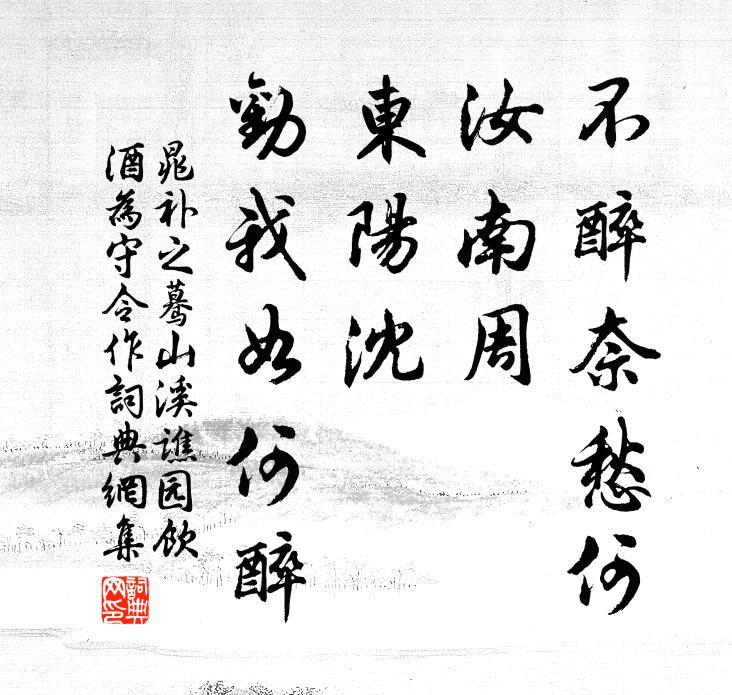 不醉奈愁何
汝南周
東陽沈
勸我如何醉
晁补之驀山溪譙园飲
酒為守令作詞典網集
詞典
网印